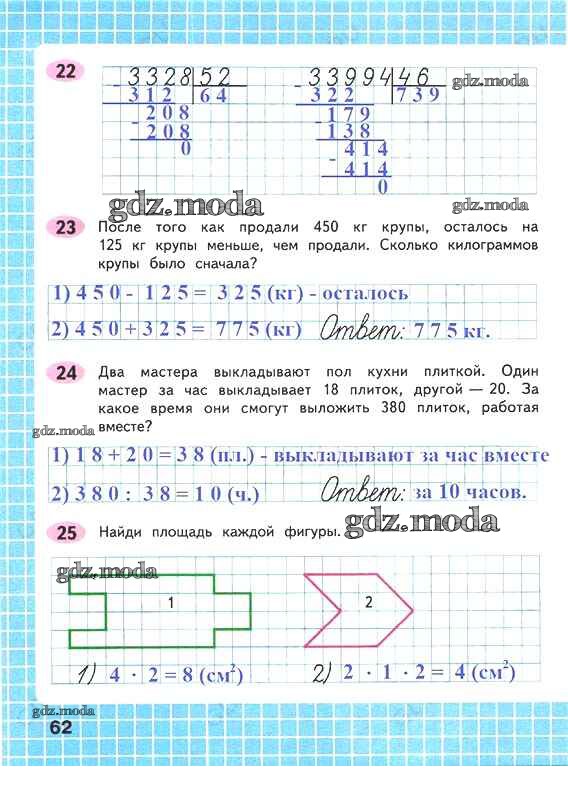 22
3328 52
312 64
- 208
208
0
33994 46
322 739
- 179
138
- 414
414
0
gdz.moda
gdz.moda
23 После того как продали 450 кг крупы, осталось на
125 кг крупы меньше, чем продали. Сколько килограммов
крупы было сначала?
1) 450 - 125 = 325 (кг) - осталось
2) 450 + 325 = 775 (кг) Ответ: 775 кг.
24 Два мастера выкладывают пол кухни плиткой. Один
мастер за час выкладывает 18 плиток, другой — 20. За
какое время они смогут выложить 380 плиток, работая
вместе?
gdz.moda
1) 18 + 20 = 38 (пл.) - выкладывают за час вместе
2) 380 : 38 = 10 (ч.) Ответ: за 10 часов.
25 Найди площадь каждой фигуры.
gdz.moda
gdz.moda
1
2
1) 4 · 2 = 8 (см²)
2) 2 · 1 · 2 = 4 (см²)
gdz.moda
62